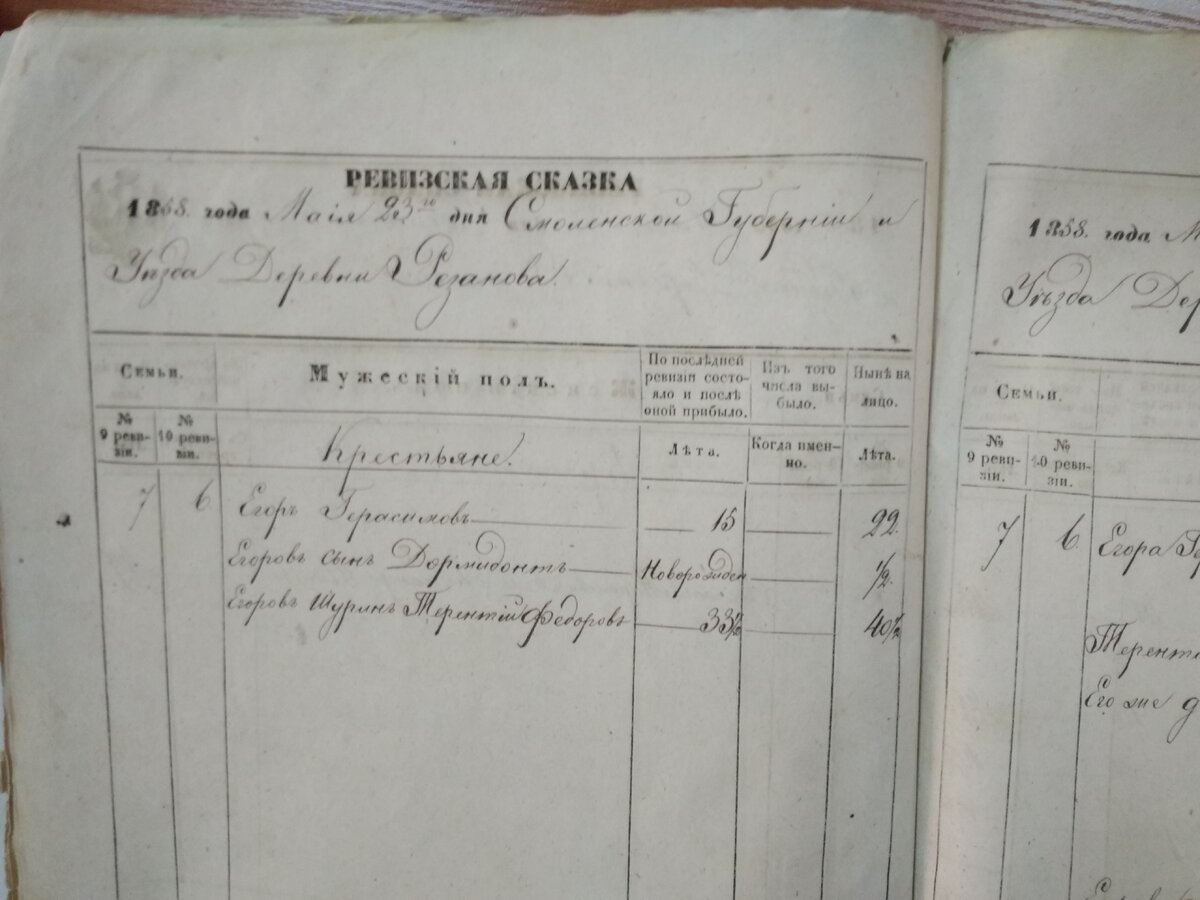 РЕВИЗСКАЯ СКАЗКА
1858. года Маія 23го дня Смоленской Губерніи и
Уѣзда Деревни Резанова.
Семьи.
Мужескій полъ.
По послѣдней
ревизіи состо-
яло и послѣ
оной прибыло.
Изъ того
числа вы-
было.
Нынѣ на
лицо.
№
9 реви-
зіи.
№
10 реви-
зіи.
Крестьяне.
Лѣта.
Когда имен-
но.
Лѣта.
7 6. Егоръ Герасимовъ 15 22.
Егоровъ сынъ Дормидонтъ Новорожден 1/2.
Егоровъ Шуринъ Терентій Федоровъ 33 1/2 40 1/2
1858. года
Уѣзда
Семьи.
№
9 реви-
зіи.
№
10 реви-
зіи.
7 6. Егора
Его же